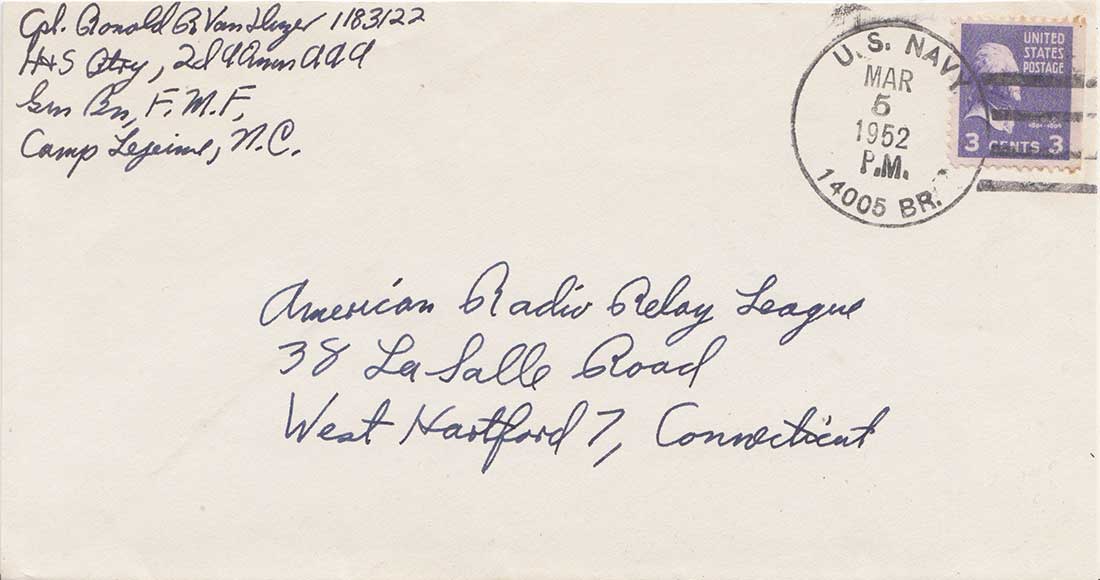 Cpl. Ronald R Van Huzer 1183122
H+S Btry, 2d 90mm AAA
Gun Bn, F.M.F,
Camp Lejeune, N.C.
U.S. NAVY
MAR
5
1952
P.M.
14005 BR.
UNITED
STATES
POSTAGE
3 CENTS 3
American Radio Relay League
38 La Salle Road
West Hartford 7, Connecticut